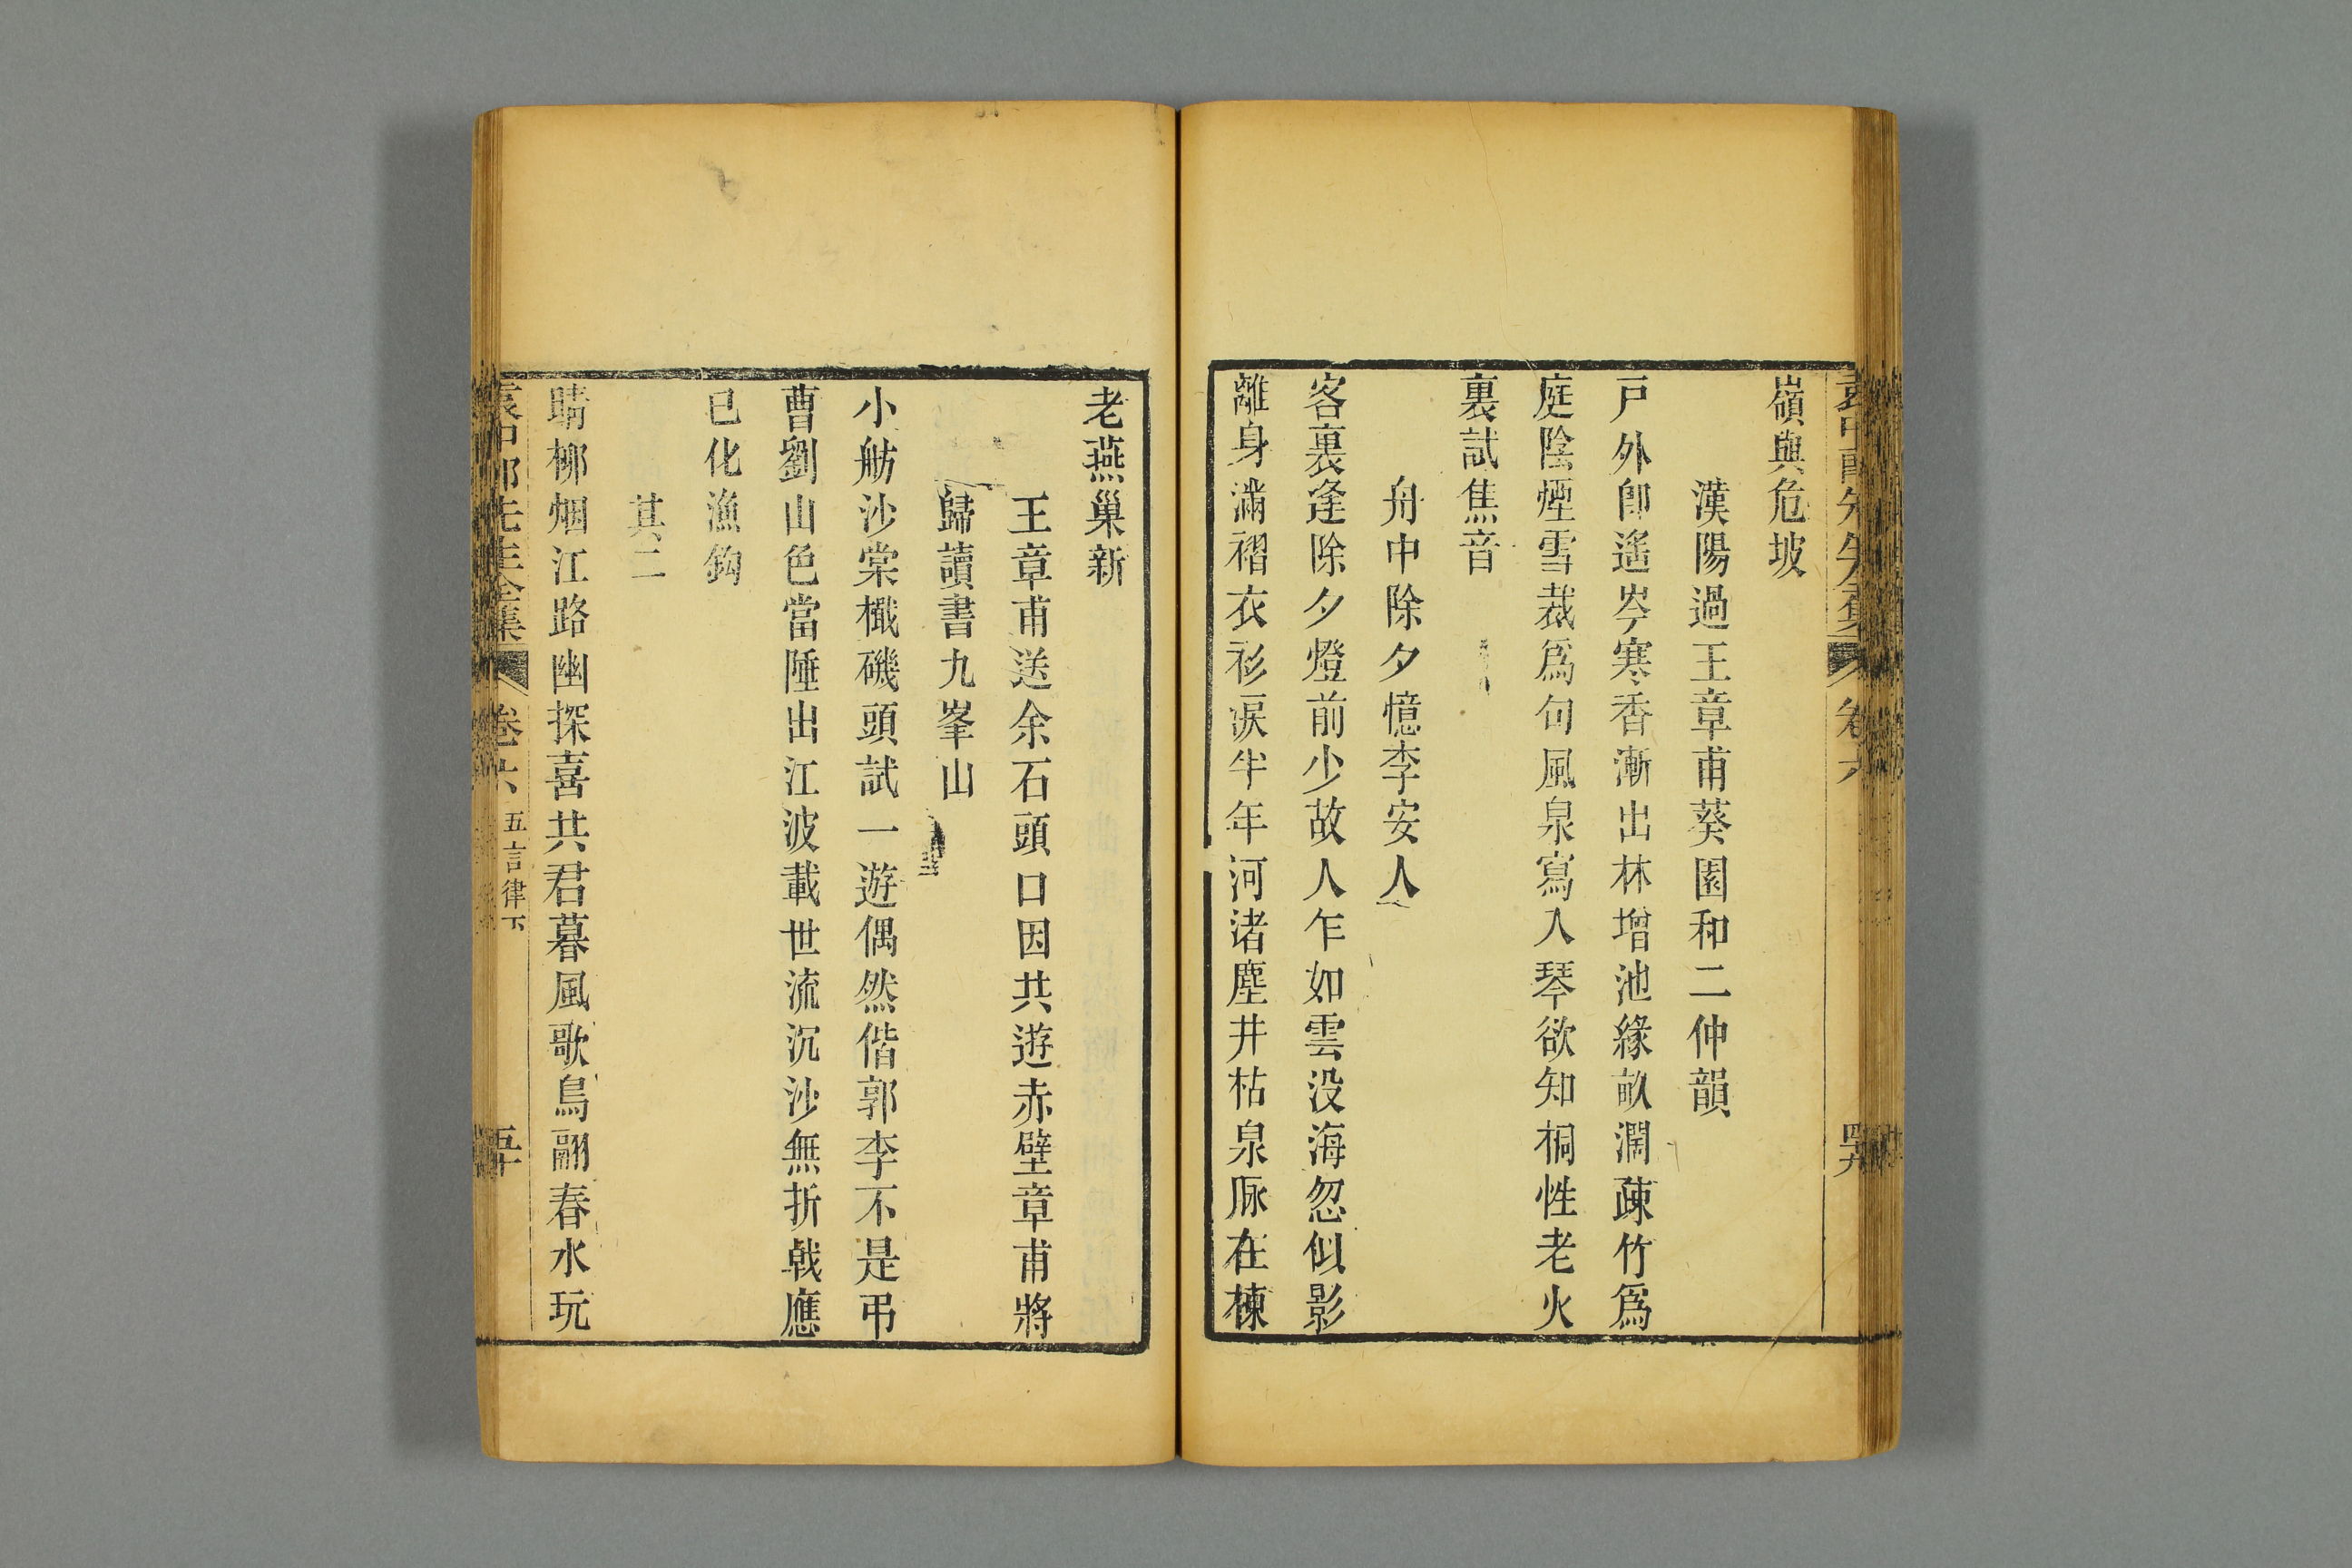 嶺與危坡
漢陽過王章甫葵園和二仲韻
戸外即遙岑寒香漸出林增池緣畝澗疎竹爲
庭陰煙雪裁爲句風泉寫入琴欲知桐性老火
裏試焦音
舟中除夕憶李安人
客裏逢除夕燈前少故人乍如雲没海忽似影
離身滿褶衣衫淚半年河渚塵井枯泉脉在棟
老燕巢新
王章甫送余石頭口因共遊赤壁章甫將
歸讀書九峯山
小舫沙棠檝磯頭試一遊偶然偕郭李不是弔
曹劉山色當陲出江波載世流沉沙無折戟應
已化漁鈎
其二
晴栁烟江路幽探喜共君暮風歌鳥翮春水玩
袁中郎先生全集 卷六 五言律下 五十